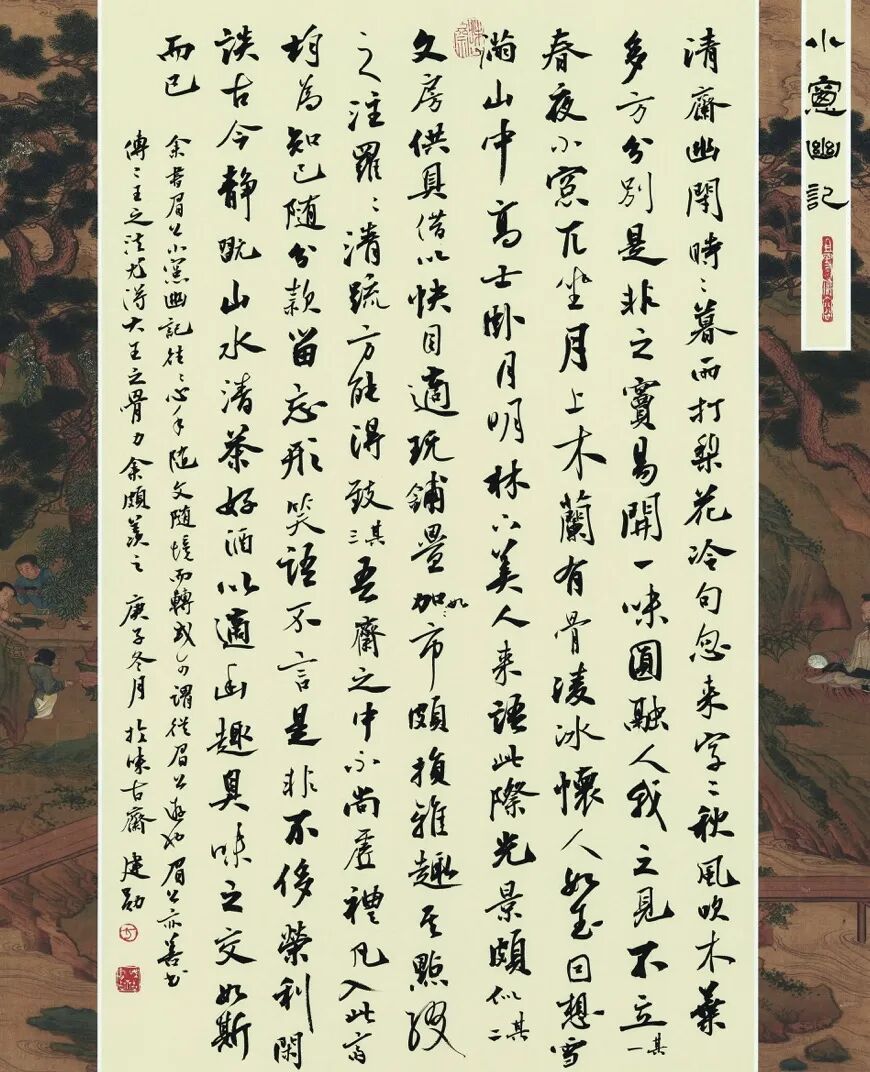 小窻幽記
清齋幽閉時〻暮雨打梨花冷句忽来字〻秋風吹木葉
多方分別是非之竇易開一味圓融人我之見不立其一
春夜小窻兀坐月上木蘭有骨凌冰懷人如玉因想雪
滿山中高士卧月明林下美人来語此際光景頗似其二
文房供具借以快目適玩鋪疊加〻如市頗損雅趣其點綴
之注羅〻清疏方能得致其三吾齋之中不尚虛禮凡入此齋
均為知己随分款留忘形笑語不言是非不侈榮利閑
談古今静玩山水清茶好酒以適幽趣臭味之交如斯
而已
余書眉公小窻幽記往〻心手随文随境而轉或可謂從眉公遊也眉公亦善書
傳二王之法尤得大王之骨力余頗羡之庚子冬月於味古齋建勛